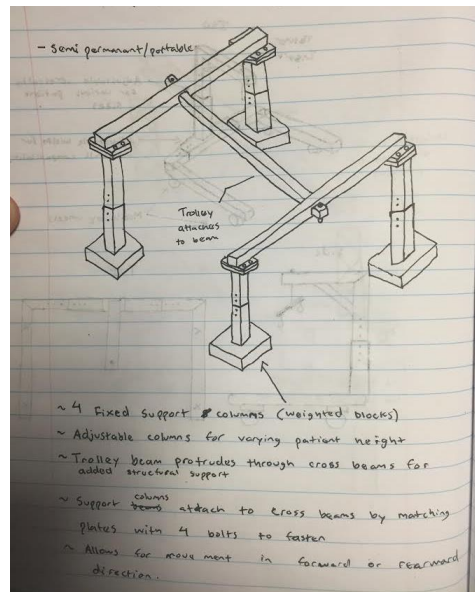 - Semi permanant/portable
Trolley
attaches
to beam
~ 4 Fixed support columns (weighted blocks)
~ Adjustable columns for varying patient height
~ Trolley beam protrudes through cross beams for
added structural support
~ Support columns attach to cross beams by matching
plates with 4 bolts to fasten
~ Allows for movement in forward or rearward
direction.